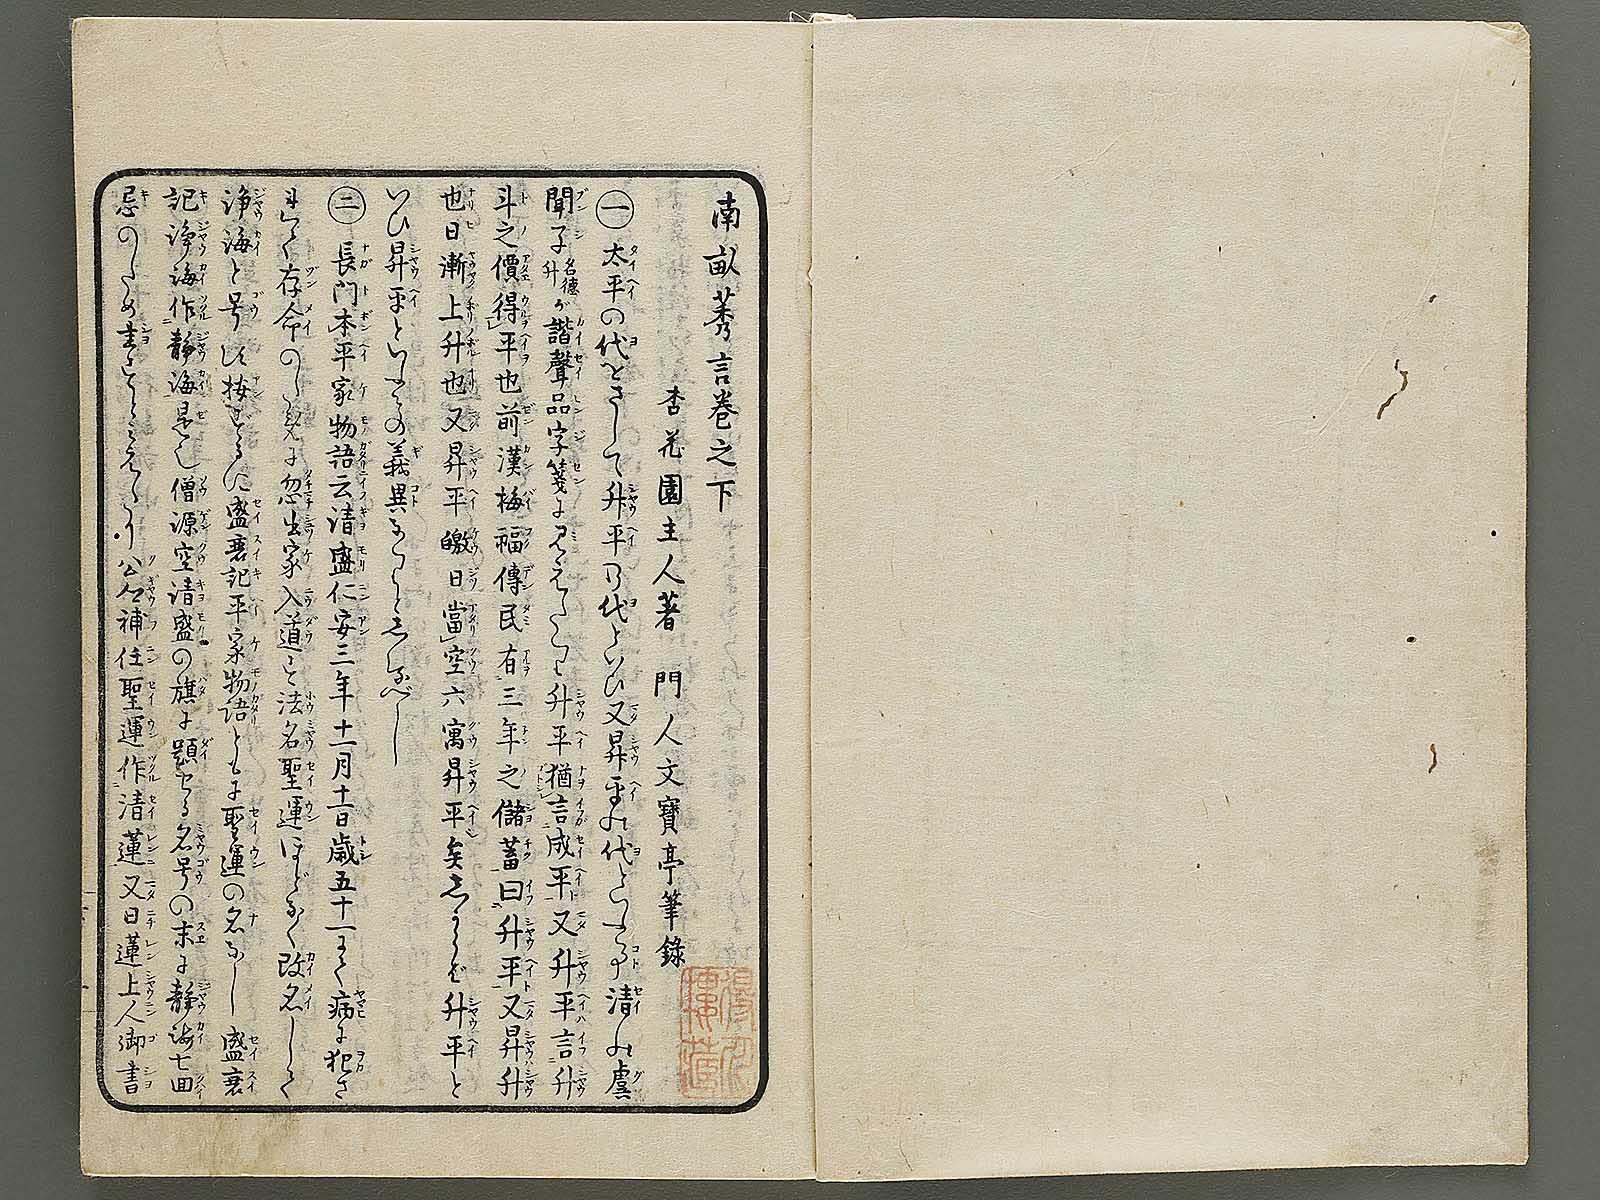 南畝莠言巻之下
杏花園主人著 門人文寶亭筆錄
一 太平の代をさして升平の代といひ又昇平の代といふ事清の虞
聞子名德升が諧聲品字箋に見えたり升平猶言成平又升平言升
斗之價得平也前漢梅福傳民有三年之儲蓄曰升平又昇升
也日漸上升也又昇平皦日當空六寓昇平矣しからば升平と
いひ昇平といふもの義異なりとしるべし
二 長門本平家物語云清盛仁安三年十一月十一日歳五十一にて病に犯さ
れて存命のために忽出家入道と法名聖運ほどなく改名して
淨海と号す按ずるに盛衰記平家物語ともに聖運の名なし盛衰
記淨海作静海是也僧源空清盛の旗に題せる名号の末に静海七回
忌のため書とみえたり公卿補任聖運作清蓮又日蓮上人御書